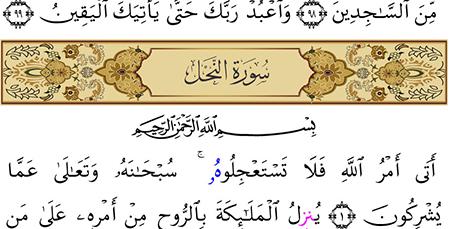 مِّنَ ٱلسَّٰجِدِينَ ﴿٩٨﴾ وَٱعۡبُدۡ رَبَّكَ حَتَّىٰ يَأۡتِيَكَ ٱلۡيَقِينُ ﴿٩٩﴾
سُورَةُ النَّحۡلِ
بِسۡمِ ٱللَّهِ ٱلرَّحۡمَٰنِ ٱلرَّحِيمِ
أَتَىٰٓ أَمۡرُ ٱللَّهِ فَلَا تَسۡتَعۡجِلُوهُۥۚ سُبۡحَٰنَهُۥ وَتَعَٰلَىٰ عَمَّا
يُشۡرِكُونَ ﴿١﴾ يُنزِلُ ٱلۡمَلَٰٓئِكَةَ بِٱلرُّوحِ مِنۡ أَمۡرِهِۦ عَلَىٰ مَن